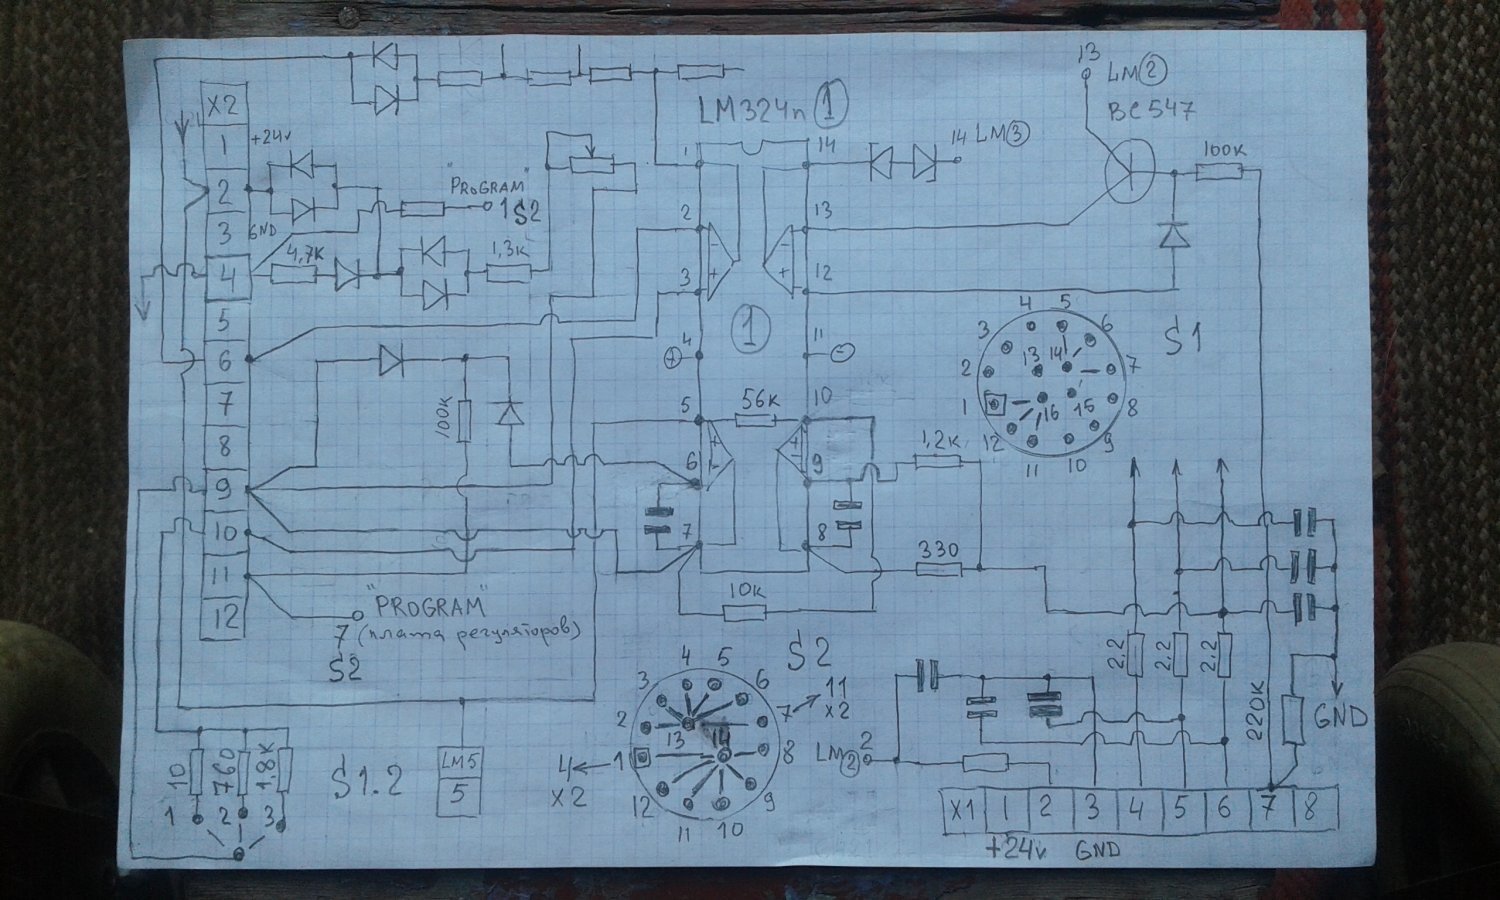 X2
1
+24v
2
3
GND
4
5
6
7
8
9
10
11
12
4,7к
"PROGRAM"
1 S2
1,3к
LM324n 1
1
14
14 LM 3
2
13
3
12
1
4
+
11
-
5
56к
10
6
9
7
8
10к
100к
13
LM 2
BC 547
100к
S1
1 2 3 4 5 6 7 8 9 10 11 12
13 14 15 16
1,2к
330
"PROGRAM"
7 (плата регуляторов)
S2
S2
1 2 3 4 5 6 7 8 9 10 11 12
13 14
11
X2
4
X2
LM5
5
S1.2
10
760
1.8к
1 2 3
2.2
2.2
2.2
220к
GND
2
LM 2
X1 1 2 3 4 5 6 7 8
+24v GND